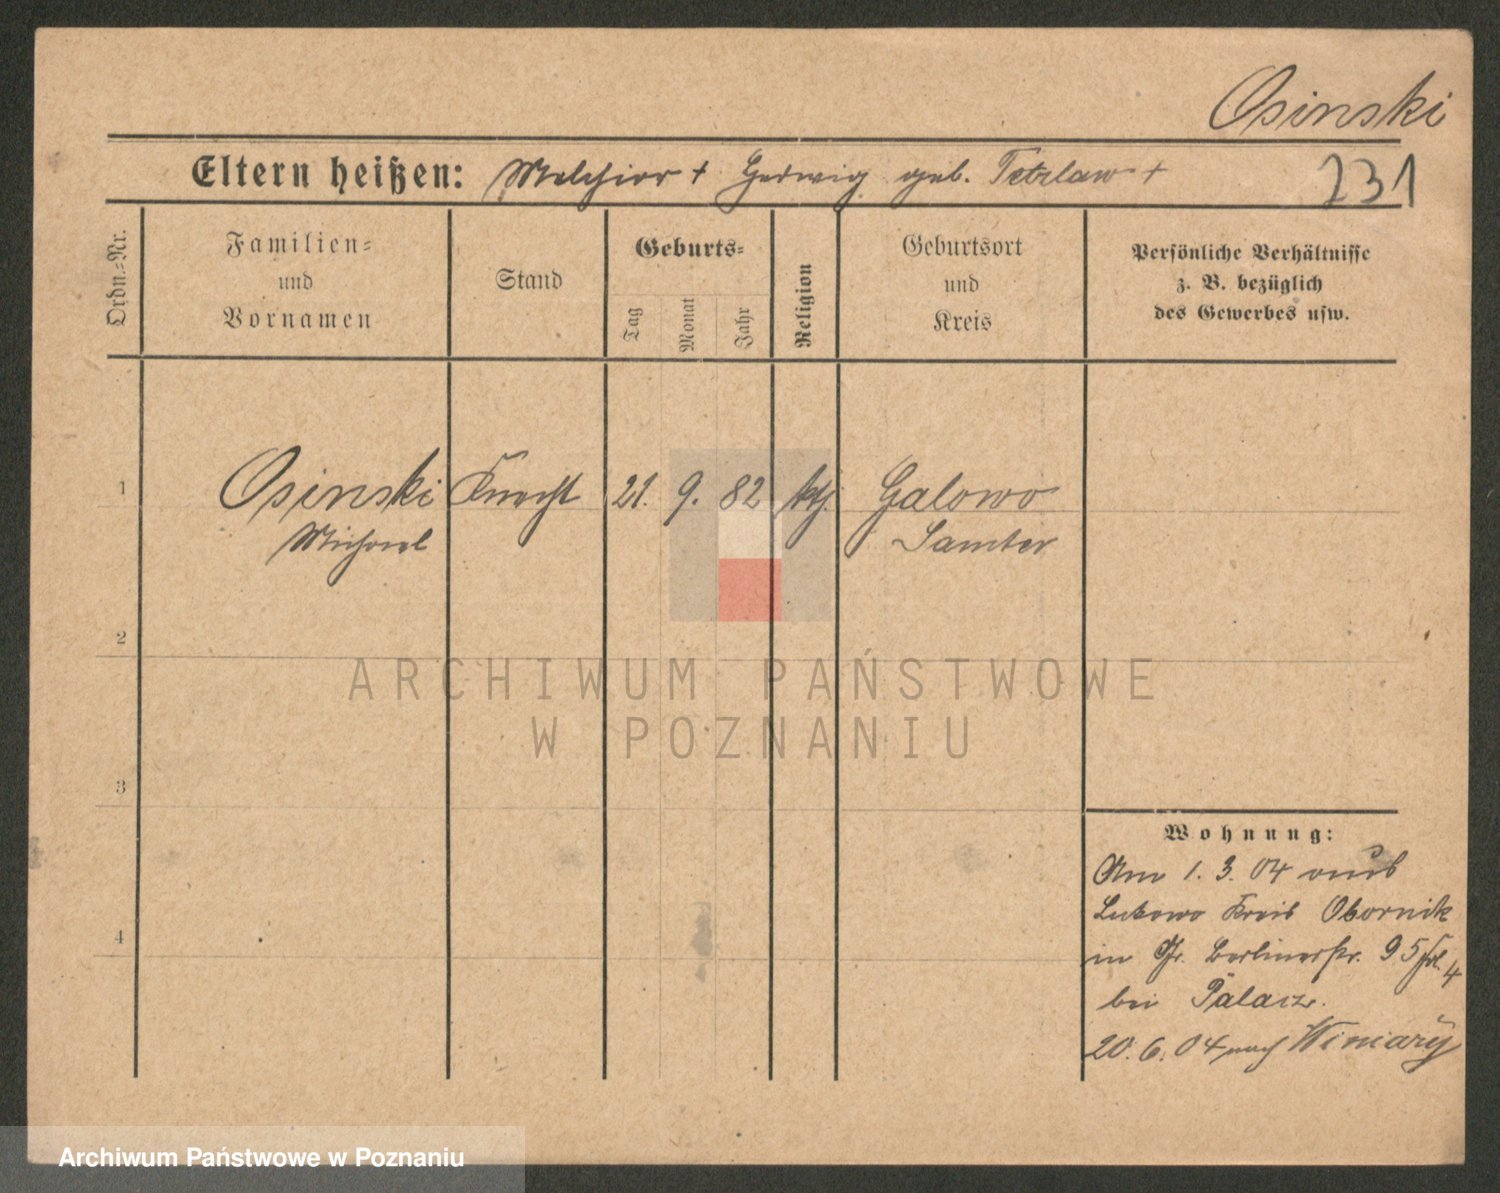 Osinski
Eltern heißen: Melchior + Hedwig geb. Tetzlaw +
231
Ordn.=Nr.
Familien=
und
Vornamen
Stand
Geburts=
Tag
Monat
Jahr
Religion
Geburtsort
und
Kreis
Persönliche Verhältnisse
z. B. bezüglich
des Gewerbes usw.
1 Osinski Knecht 21. 9. 82 kth. Galowo
Michael Samter
2
3
4
Wohnung:
Am 1. 3. 04 aus
Lukowo Kreis Obornik
in Gr. Berlinerstr. 95 4
bei Palacz.
20. 6. 04 nach Winiary
ARCHIWUM PAŃSTWOWE
W POZNANIU
Archiwum Państwowe w Poznaniu